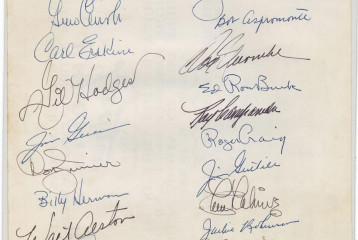 Gino Cimoli
Carl Erskine
Gil Hodges
Jim Gilliam
Don Zimmer
Billy Herman
Walt Alston
Bob Aspromonte
Don Newcombe
Ed Roebuck
Roy Campanella
Roger Craig
Jim Gentile
Jackie Robinson